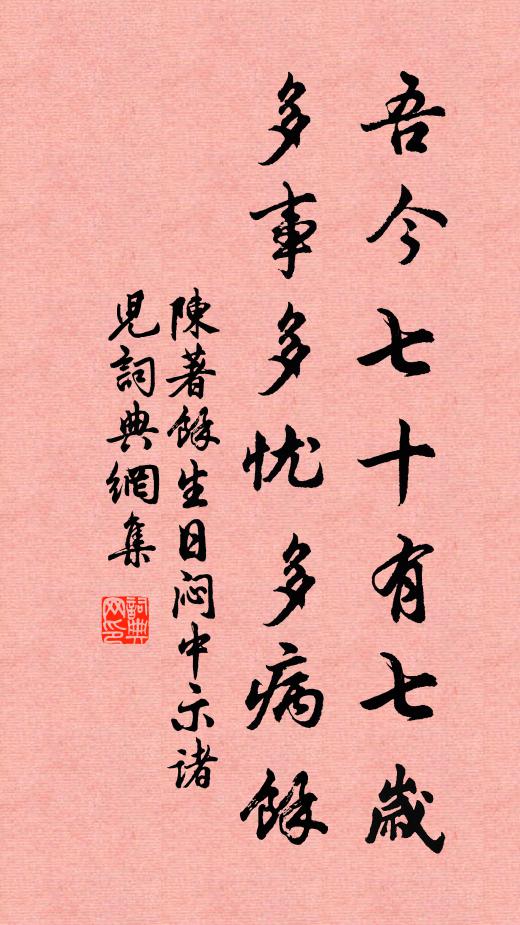 吾今七十有七歲
多事多忧多病餘
陳著餘生日闷中示诸
児詞典網集
詞典網印